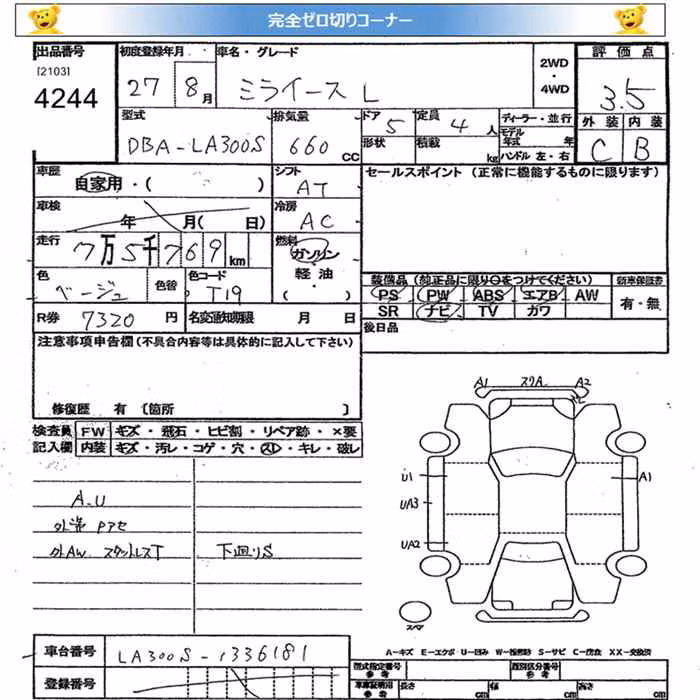 完全ゼロ切りコーナー
出品番号 初度登録年月 車名・グレード 評価点
[2103]
4244 27 8月 ミライース L 2WD・4WD 3.5
型式 排気量 ドア 定員 ディーラー・並行 外装 内装
DBA-LA300S 660 CC 5 4人 モデル年式 年
形状 積載 kg ハンドル 左・右 C B
車歴 シフト セールスポイント (正常に機能するものに限ります)
自家用・( ) AT
車検 冷房
年 月( 日) AC
走行 燃料
7万5千769km ガソリン
色 色替 色コード 軽油 装備品 (純正品に限り○をつけてください) 新車保証書
ベージュ T19 ( ) PS PW ABS エアB AW 有・無
R券 7320円 名変通知期限 月 日 SR ナビ TV ガワ
注意事項申告欄 (不具合内容等は具体的に記入して下さい) 後日品
修復歴 有 〔箇所 〕
検査員 FW キズ・飛石・ヒビ割・リペア跡・×要
記入欄 内装 キズ・汚レ・コゲ・穴・スレ・キレ・破レ
A1 スリA A2
U1 A1
UA3
A.U
UA2
外AW スタットレスT 下廻りS
A-キズ E-エクボ U-凹み S-サビ C-腐食 XX-交換済
車台番号 LA300S-1336181
登録番号
型式指定番号 参考 類別区分番号 参考
車庫証明用 参考 長さ cm 幅 cm 高さ cm